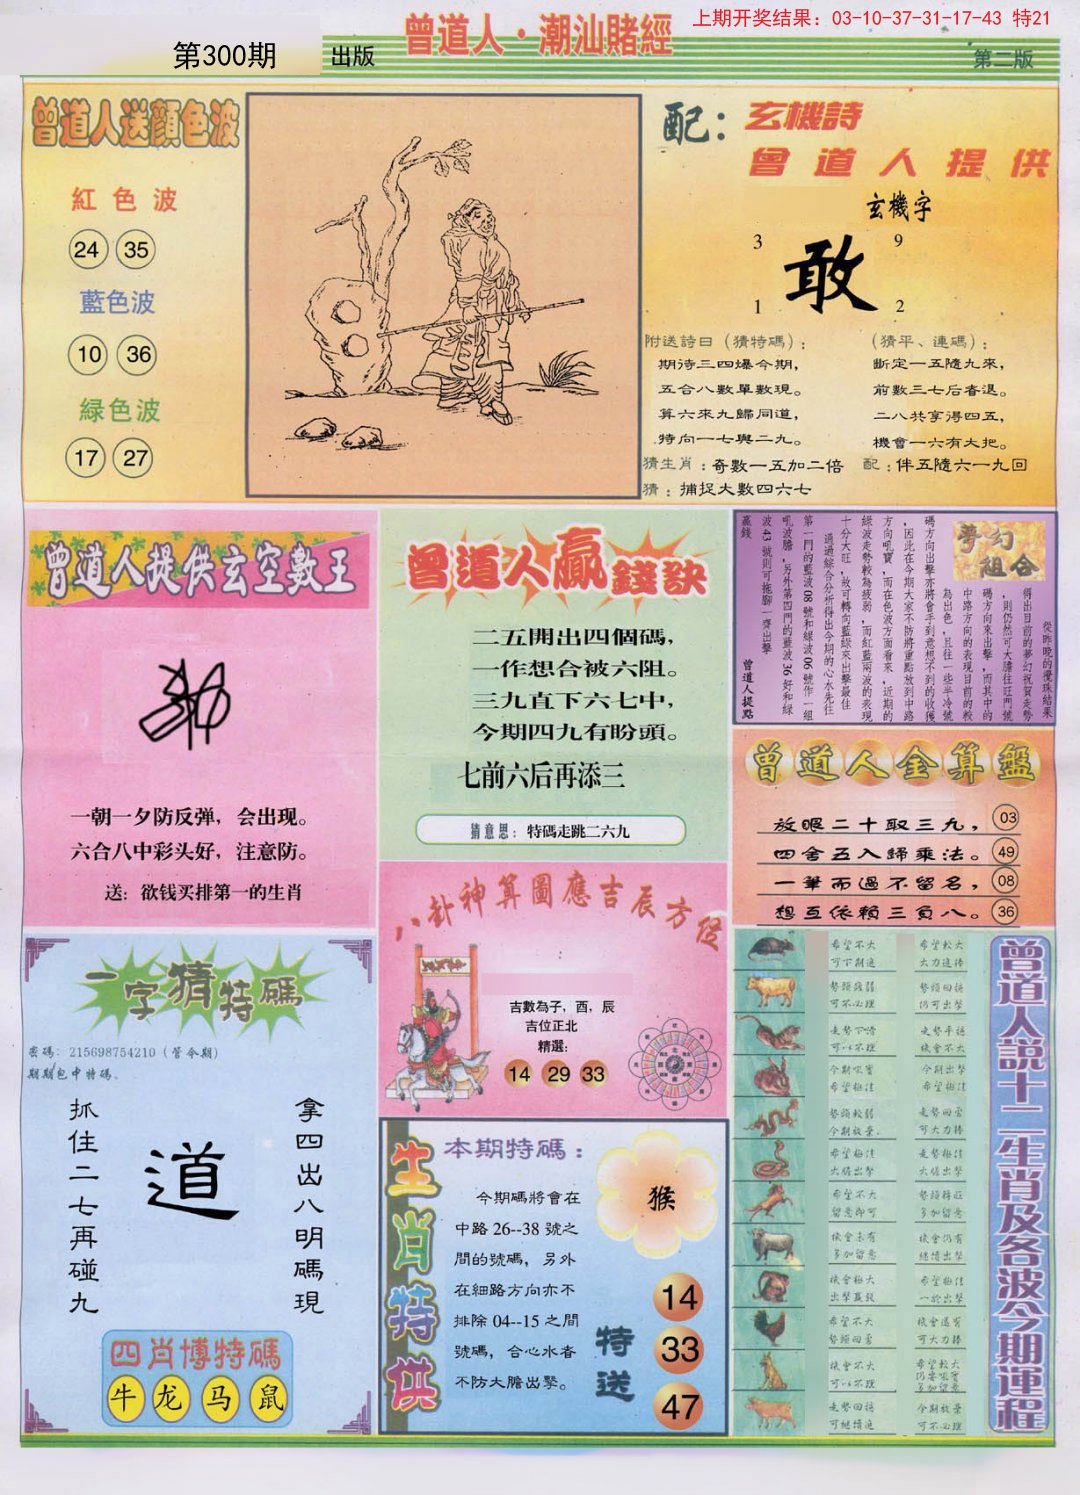 上期开奖结果：03-10-37-31-17-43 特21
第300期
出版
曾道人·潮汕賭經
第二版
曾道人送顔色波
紅色波
24 35
藍色波
10 36
緑色波
17 27
配：玄機詩
曾道人提供
玄機字
3 9
敢
1 2
附送詩曰（猜特碼）：
期待三四爆今期，
五合八數單數現。
算六來九歸同道，
特向一七與二九。
猜生肖：奇數一五加二倍
猜：捕捉大數四六七
（猜平、連碼）：
斷定一五隨九來，
前數三七后看退。
二八共享得四五，
機會一六有大把。
配：伴五隨六一九回
曾道人提供玄空數王
一朝一夕防反弹，会出现。
六合八中彩头好，注意防。
送：欲钱买排第一的生肖
曾道人贏錢訣
二五開出四個碼，
一作想合被六阻。
三九直下六七中，
今期四九有盼頭。
七前六后再添三
猜意思：特碼走跳二六九
夢幻組合
從昨晚的攪珠結果
得出目前的夢幻祝賀走勢
，則仍然可大膽往旺門號
碼方向來出擊，而其中的
中路方向的表現目前的較
為出色，且往一些半冷號
碼方向出擊亦將會手到意想不到的收獲
，因此在今期大家不防將重點放到中路
方向吼寶，而在色波方面看來，近期的
綠波走勢較為疲弱，而紅藍兩波的表現
十分大旺，故可轉向藍綠來出擊最佳
通過綜合分析得出今期的心水先往
第一門的藍波08號和綠波06號作一組
吼波膽，另外第四門的藍波36好和綠
波43號則可拖腳一齊出擊
贏錢
曾道人提點
曾道人金算盤
放眼二十取三九， 03
四舍五入歸乘法。 49
一筆而過不留名， 08
想互依賴三負八。 36
八卦神算圖應吉辰方位
吉數為子，酉，辰
吉位正北
精選：
14 29 33
一字猜特碼
密碼：215698754210（管令期）
期期包中特碼。
抓住二七再碰九
道
拿四出八明碼現
四肖博特碼
牛 龙 马 鼠
生肖特供
本期特碼：
今期碼將會在
中路26--38號之
間的號碼，另外
在細路方向亦不
排除04--15之間
號碼，合心水者
不防大膽出擊。
猴
特送
14
33
47
曾道人説十二生肖及各波今期運程
希望不大 希望較大
可下期進 大力追捧
勢頭疲弱 勢頭回穩
可不必理 仍可出擊
走勢下滑 走勢平穩
可以不理 機會不大
今期吼實 今期出擊
希望極佳 希望極佳
勢頭較弱 走勢回雷
今期放棄 可大力捧
希望極佳 走勢極佳
大膽出擊 大膽出擊
希望不大 勢頭轉旺
留意即可 多加留意
機會未有 機會仍有
多加留意 繼續出擊
機會極大 希望極佳
出擊贏錢 一於出擊
希望不大 機會還有
勢頭回雷 可大力捧
機會不大 希望較大
可以不理 仍要吼實
多加留意
走勢回穩 今期放棄
可繼續進 可不必理